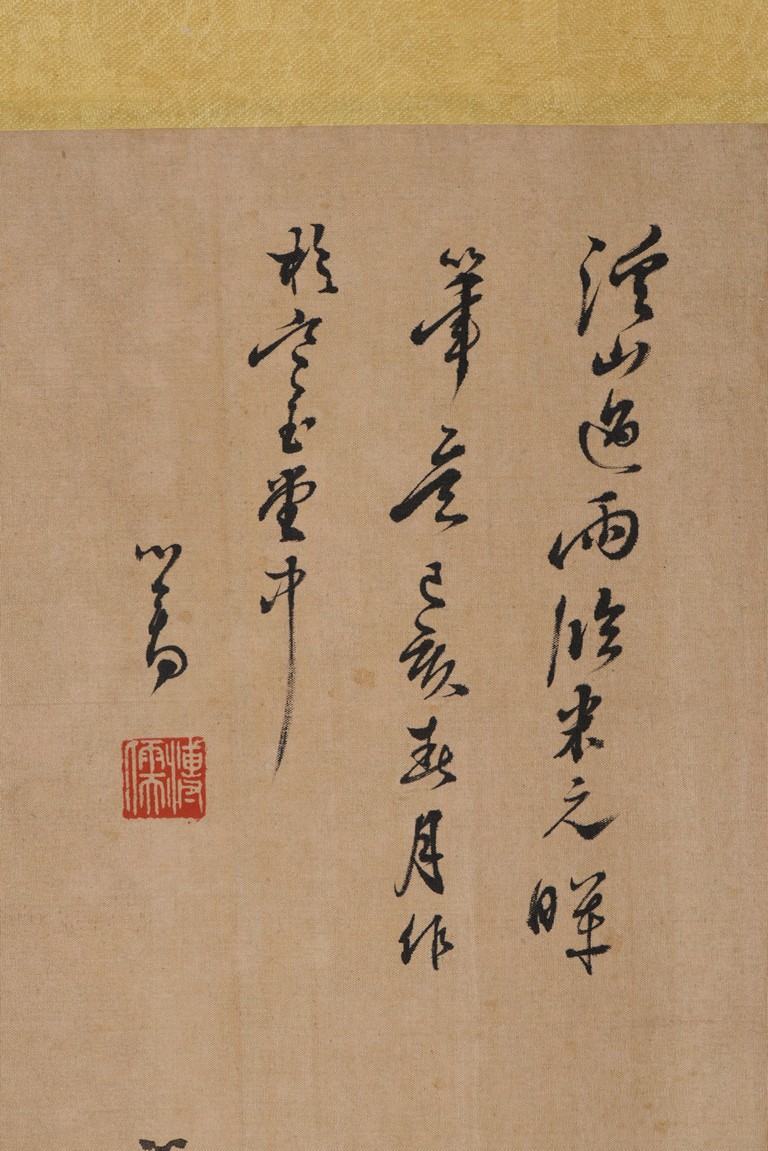 溪山過雨臨米元暉
筆意己亥春月作
於寒玉堂中
心畬
溥儒